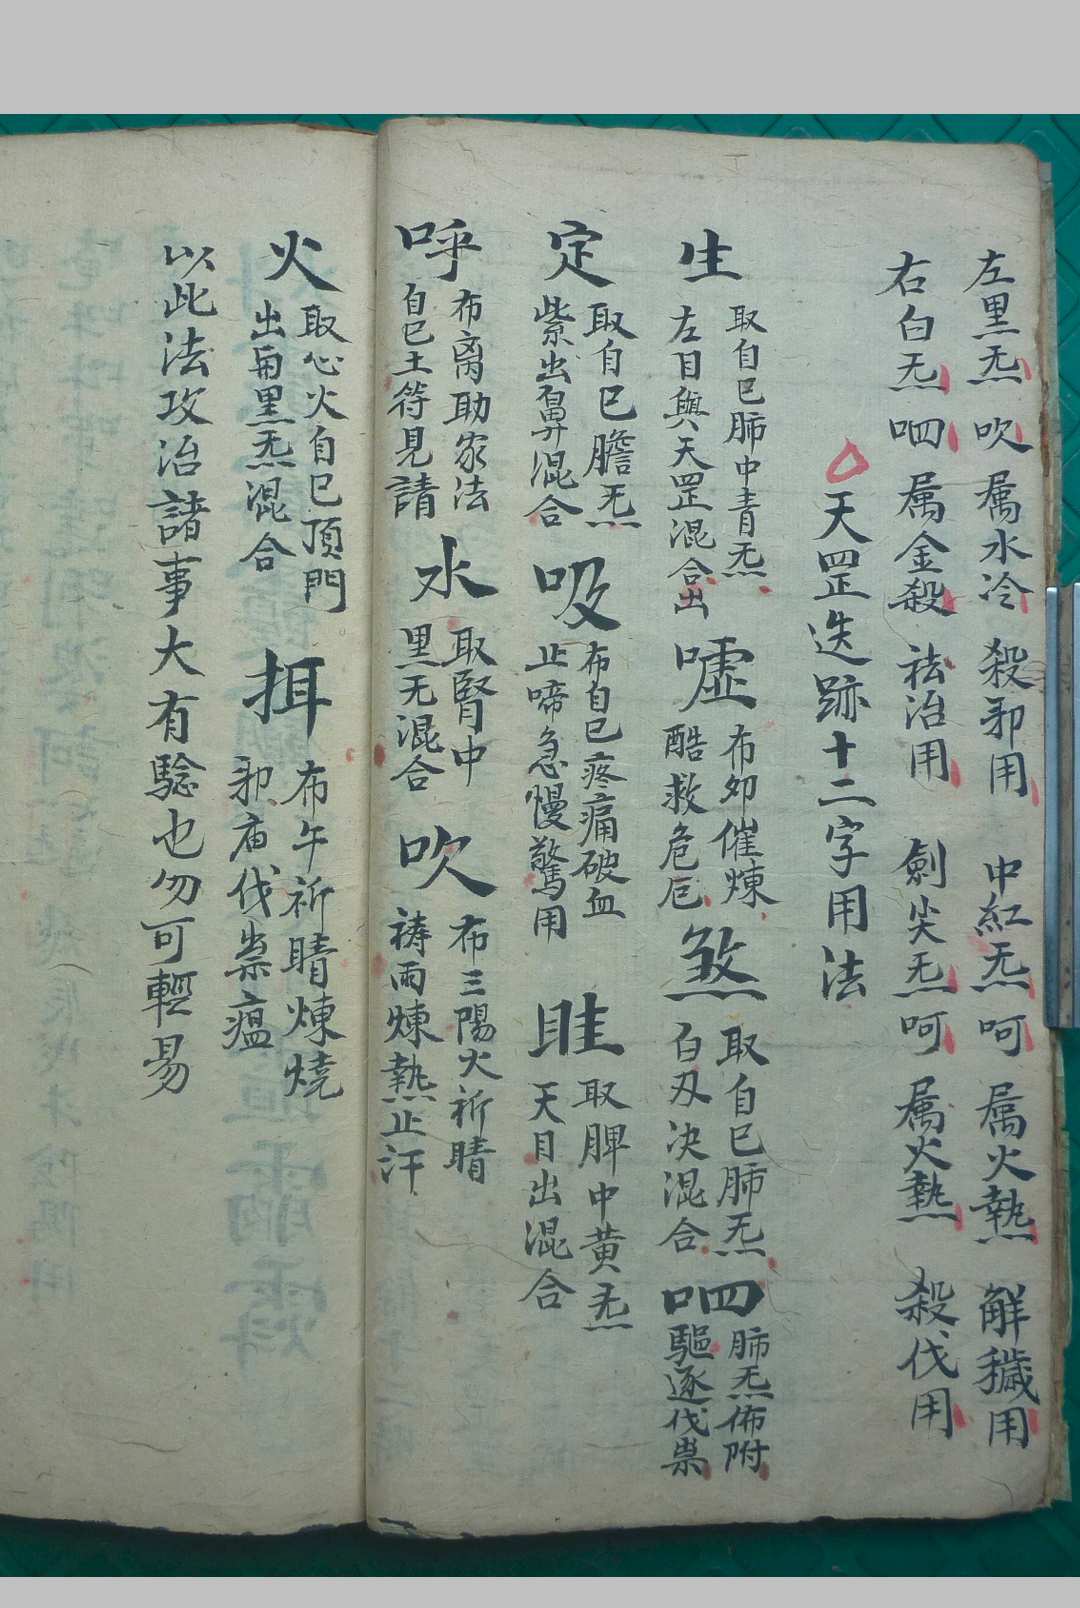 左黑炁 吹 属水冷 殺邪用 中紅炁 呵 属火熱 解穢用
右白炁 呬 属金殺 祛治用 劍尖炁 呵 属火熱 殺伐用
天罡迭跡十二字用法
生 取自己肺中青炁 左目與天罡混合出 嘘 布卯催煉 酷救危厄 煞 取自己肺炁 白刃决混合 呬 肺炁佈附 驅逐伐祟
定 取自己膽炁 紫出鼻混合 吸 布自己疼痛破血 止啼急慢驚用 眭 取脾中黄炁 天目出混合
呼 布离助家法 自己土符見請 水 取腎中 黑无混合 吹 布三陽火祈晴 祷雨煉熱止汗
火 取心火自己頂門 出角黑炁混合 挕 布午祈晴煉燒 邪庙伐祟瘟
以此法攻治諸事大有驗也勿可輕易